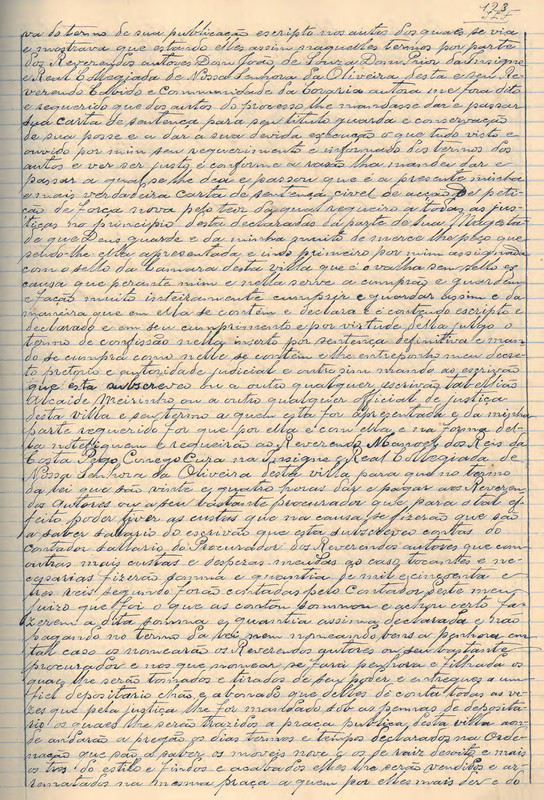 123
va do termo de sua publicação escripto nos autos dos quaes se via
e mostrava que estando elles assim naquelles termos por parte
dos Reverendos autores Dom João de Souza Dom Prior da Insigne
e Real Collegiada de Nossa Senhora da Oliveira desta e seu Re-
verendo Cabido e Communidade da Corária autora me fora dito
e requerido que dos autos do processo lhe mandasse dar e passar
sua carta de sentença para seu titulo guarda e conservação
de sua posse e a dar á sua devida execução o que tudo visto e
ouvido por mim seu requerimento e informado dos termos dos
autos e ver ser justo e conforme a rasão lha mandei dar e
passar a qual se lhe deu e passou que é a presente minha
e mais verdadeira carta de sentença civel de acção de peti-
ção de força nova pelo teor da qual requeiro a todas as jus-
tiças no principio desta declaradas da parte de Sua Magesta-
de que Deus guarde e da minha muito de merce lhe peço que
sendo-lhe ella apresentada e indo primeiro por mim assignada
com o sello da Camara desta villa que é o valha sem sello ex
causa que perante mim e nella serve a cumprão e guardem
e fação muito inteiramente cumprir e guardar assim e da
maneira que em ella se contém e declara e é contendo escripto e
declarado e em seu cumprimento e por virtude della julgo o
termo de confissão nella inserto por sentença definitiva e man-
do se cumpra como nelle se contém e lhe entreponho meu decre-
to pretorio e autoridade judicial e outro sim mando ao escrivão
que esta subscreveo ou a outro qualquer escrivão tabellião
Alcaide Meirinho ou a outro qualquer official de justiça
desta villa e seu termo a quem esta for apresentada e da minha
parte requerido for que por ella e com ella e na forma del-
la notefiquem e requeirão ao Reverendo Manoel dos Reis da
Costa Pego Conego Cura na Insigne e Real Collegiada de
Nossa Senhora da Oliveira desta villa para que no termo
da lei que são vinte e quatro horas dar e pagar aos Reveren-
dos autores ou a seu bastante procurador que para o tal ef-
feito poder tiver as custas que na causa se fizerão que são
a saber salario do escrivão que esta subscreveo contas do
contador sallario do Procurador dos Reverendos autores que com
outras mais custas e despesas meudas ao caso tocantes e ne-
cessarias fizerão somma e quantia de mil e cincoenta e
tres reis segundo forão contadas pelo Contador deste meu
juizo que foi o que as contou sommou e achou certo fa-
zerem a dita somma e quantia assima declarada e não
pagando no termo da lei nem nomeando bens a penhora em
tal caso os nomearão os Reverendos autores ou seu bastante
procurador e nos que nomear se fará penhora e filhada os
quaes lhe serão tomados e tirados de seu poder e entregues a um
fiel depositario chão e abonado que delles dê conta todas as ve-
zes que pela justiça lhe for mandado sob as pennas de deposita-
rio os quaes lhe serão trazidos a praça publica desta villa aon-
de andarão a pregão os dias termos e tempos declarados na Orde-
nação que são a saber os moveis nove e os de raiz desoito e mais
os tres do estilo e findos e acabados elles lhe serão vendidos e ar-
rematados na mesma praça a quem por elles mais der e do